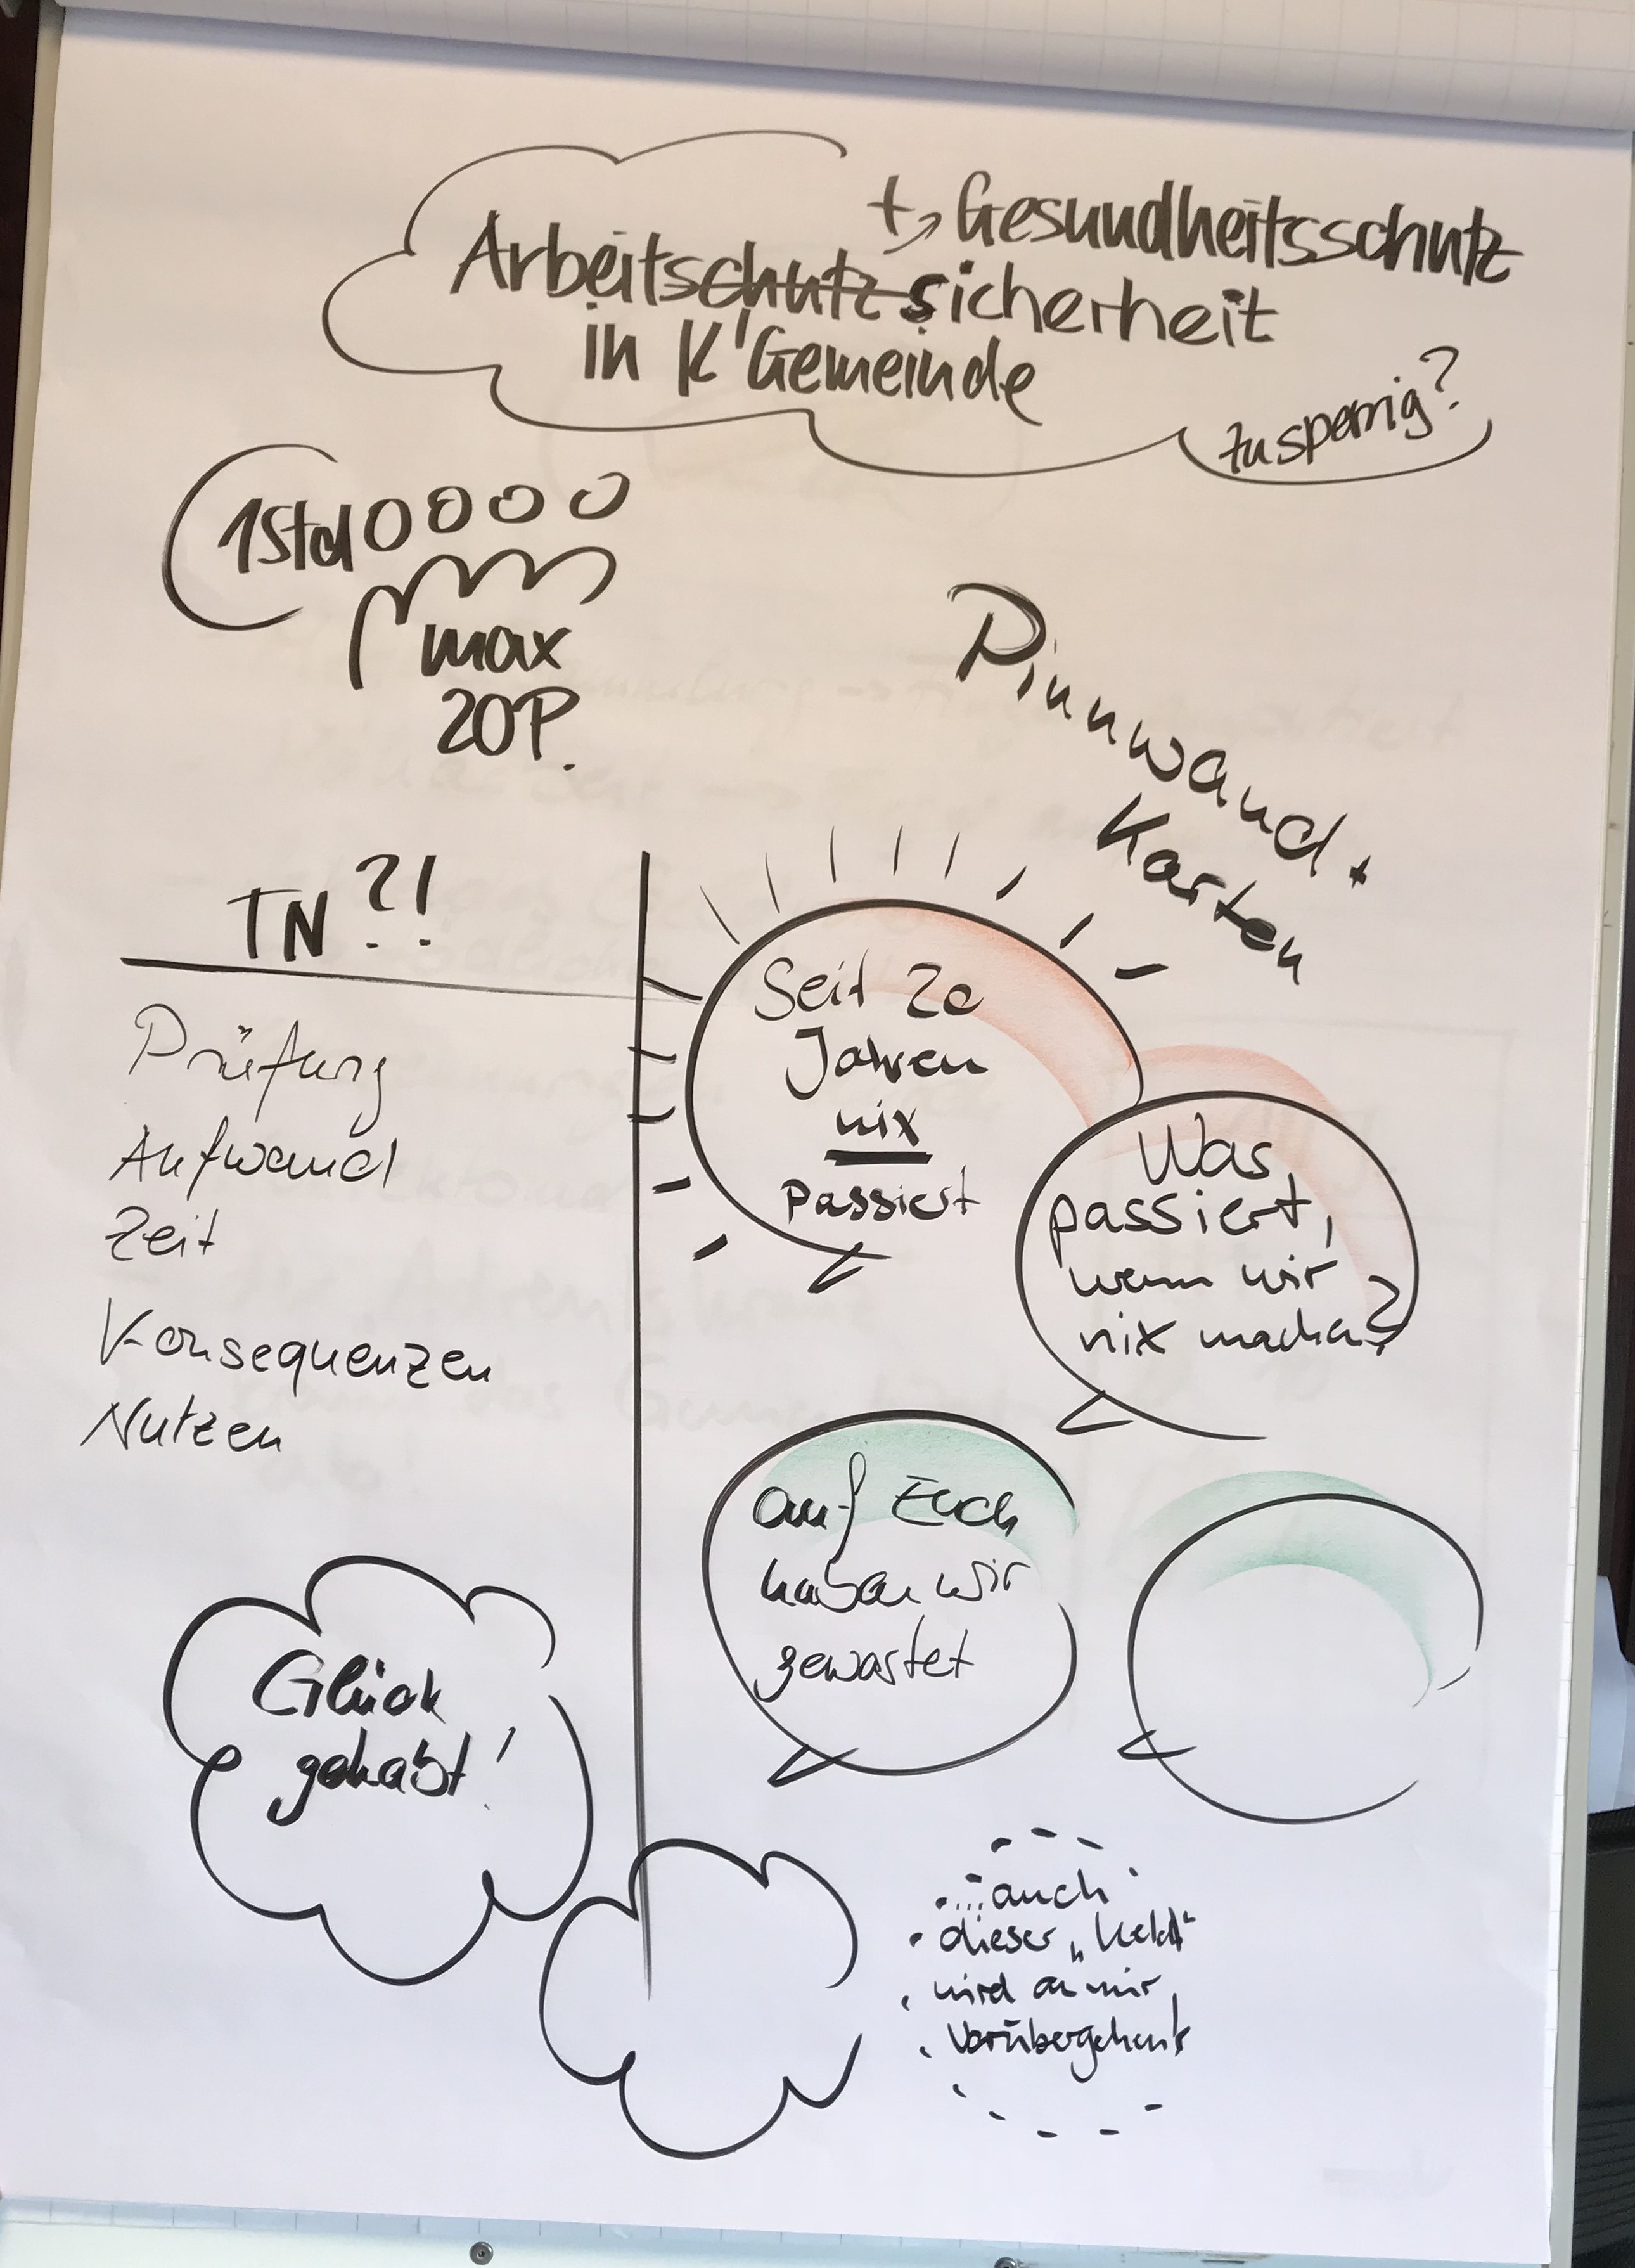 + Gesundheitsschutz
Arbeitschutz sicherheit
in K'Gemeinde
zu sperrig?
1Std
max
20P.
Pinnwand +
Karten
TN?!
Prüfung
Aufwand
Zeit
Konsequenzen
Nutzen
Seit 20
Jahren
nix
passiert
Was
passiert,
wenn wir
nix machen?
auf Euch
haben wir
gewartet
Glück
gehabt!
...auch
dieser „Kelch“
wird an mir
vorübergehen